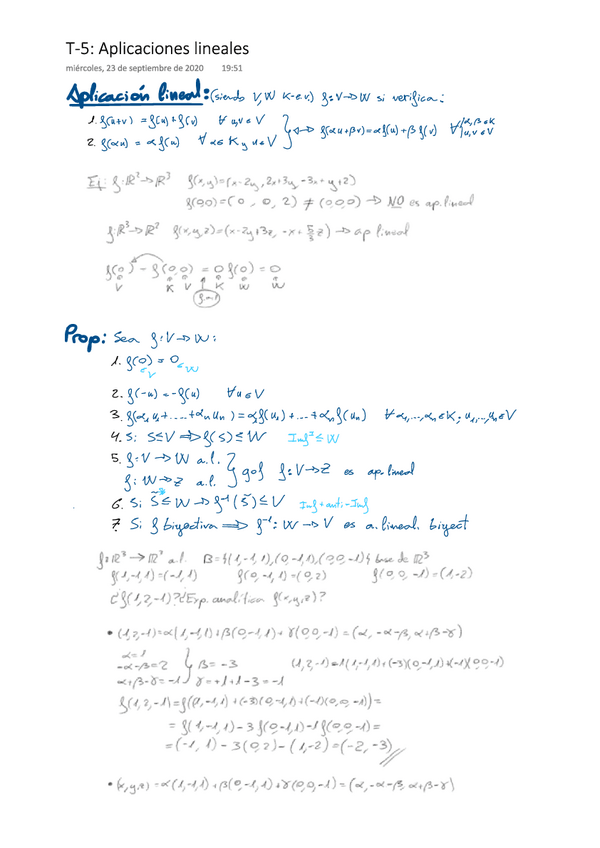 T-5: Aplicaciones lineales
miércoles, 23 de septiembre de 2020 19:51
Aplicación lineal: (siendo V, W K-e.v.) f: V→W si verifica:
1. f(u+v) = f(u)+f(v) ∀ u,v ∈ V
2. f(αu) = α f(u) ∀ α ∈ K y u ∈ V } ⇔ f(αu+βv)=αf(u)+βf(v) ∀ α,β ∈ K u,v ∈ V
Ej: f: R²→R³ f(x,y)=(x-2y, 2x+3y, -3x+y+2)
f(0,0)=(0, 0, 2) ≠ (0,0,0) → NO es ap. lineal
f: R³→R² f(x,y,z)=(x-2y+3z, -x+5/3 z) → ap lineal
f(0) = f(0·0) = 0 f(0) = 0
V K V K W W
Prop: Sea f: V→W:
1. f(0) = 0
∈V ∈W
2. f(-u) = -f(u) ∀ u ∈ V
3. f(α₁u₁+....+αₙuₙ) = α₁f(u₁)+...+αₙf(uₙ) ∀ α₁,...,αₙ ∈ K, u₁,...,uₙ ∈ V
4. Si S≤V ⇒ f(S) ≤ W Imf ≤ W
5. f: V→W a.l.
g: W→Z a.l. } g∘f f: V→Z es ap. lineal
6. Si S̃ ≤ W → f⁻¹(S̃) ≤ V Imf anti-Imf
7. Si f biyectiva ⇒ f⁻¹: W→V es a. lineal biyect
f: R³→R² a.l. B={(1,-1,1),(0,-1,1),(0,0,-1)} base de R³
f(1,-1,1)=(-1,1) f(0,-1,1)=(0,2) f(0,0,-1)=(1,-2)
¿f(1,2,-1)? ¿Exp. analítica f(x,y,z)?
• (1,2,-1)=α(1,-1,1)+β(0,-1,1)+γ(0,0,-1)=(α, -α-β, α+β-γ)
α=1
-α-β=2 } β=-3 (1,2,-1)=1(1,-1,1)+(-3)(0,-1,1)+(-1)(0,0-1)
α+β-γ=-1 γ=+1+1-3=-1
f(1,2,-1)=f((1,-1,1)+(-3)(0,-1,1)+(-1)(0,0,-1))=
= f(1,-1,1)-3f(0,-1,1)-1f(0,0,-1)=
=(-1, 1)-3(0,2)-(1,-2)=(-2,-3)
• (x,y,z)=α(1,-1,1)+β(0,-1,1)+γ(0,0,-1)=(α, -α-β, α+β-γ)